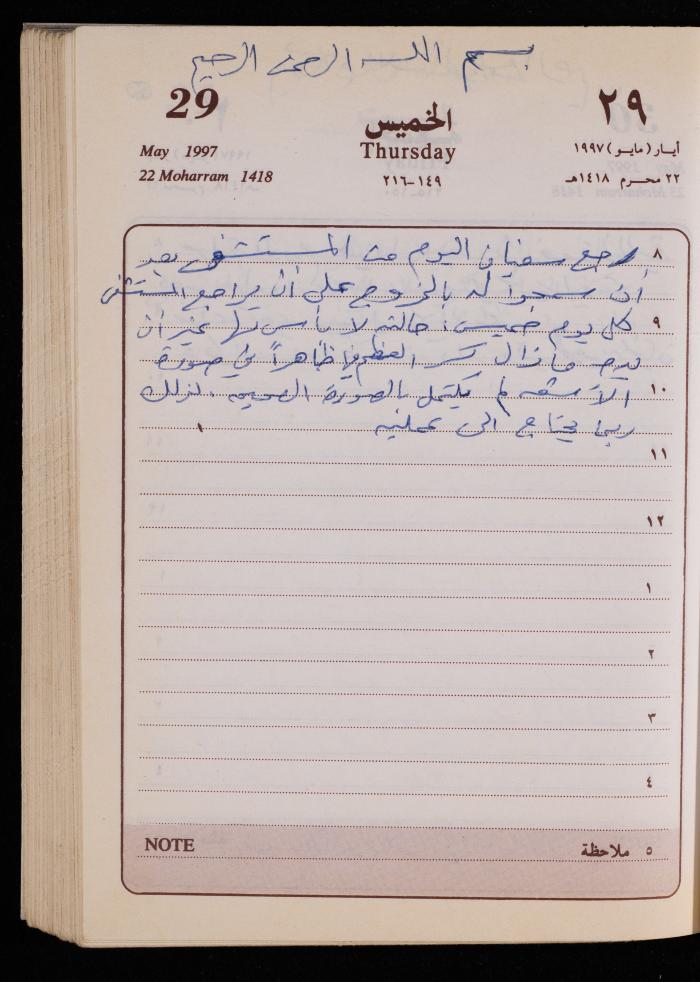 بسم الله الرحمن الرحيم
29
الخميس
٢٩
May 1997
Thursday
أيار (مايو) ١٩٩٧
22 Moharram 1418
١٤٩-٢١٦
٢٢ محرم ١٤١٨هـ
٨ رجع سفيان اليوم من المستشفى بعد
أن سمحوا له بالخروج على أن يراجع المستشفى
٩ كل يوم خميس، حالته لا بأس بها غير أن
يده مازال كسر العظم فيها ظاهراً في صورة
١٠ الأشعه لم يكتمل بالصورة الصحيحه. لذلك
ربما يحتاج الى عمليه
١١
١٢
١
٢
٣
٤
NOTE
٥ ملاحظة